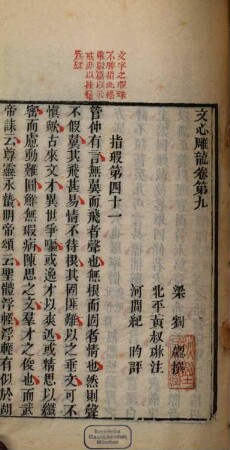 文字之瑕殊
文心雕龍卷第九
梁 劉 勰 撰
北平黃叔琳注
河間紀 昀評
指瑕第四十一
管仲有言無翼而飛者聲也無根而固者情也然則聲
不假翼其飛甚易情不待根其固匪難以之垂文可不
慎歟古來文才異世爭驅或逸才以爽迅或精思以纖
密而慮動難圓鮮無瑕病陳思之文羣才之俊也而武
帝誄云尊靈永蟄明帝頌云聖體浮輕浮輕有似於胡
Bayerische
Staatsbibliothek
München